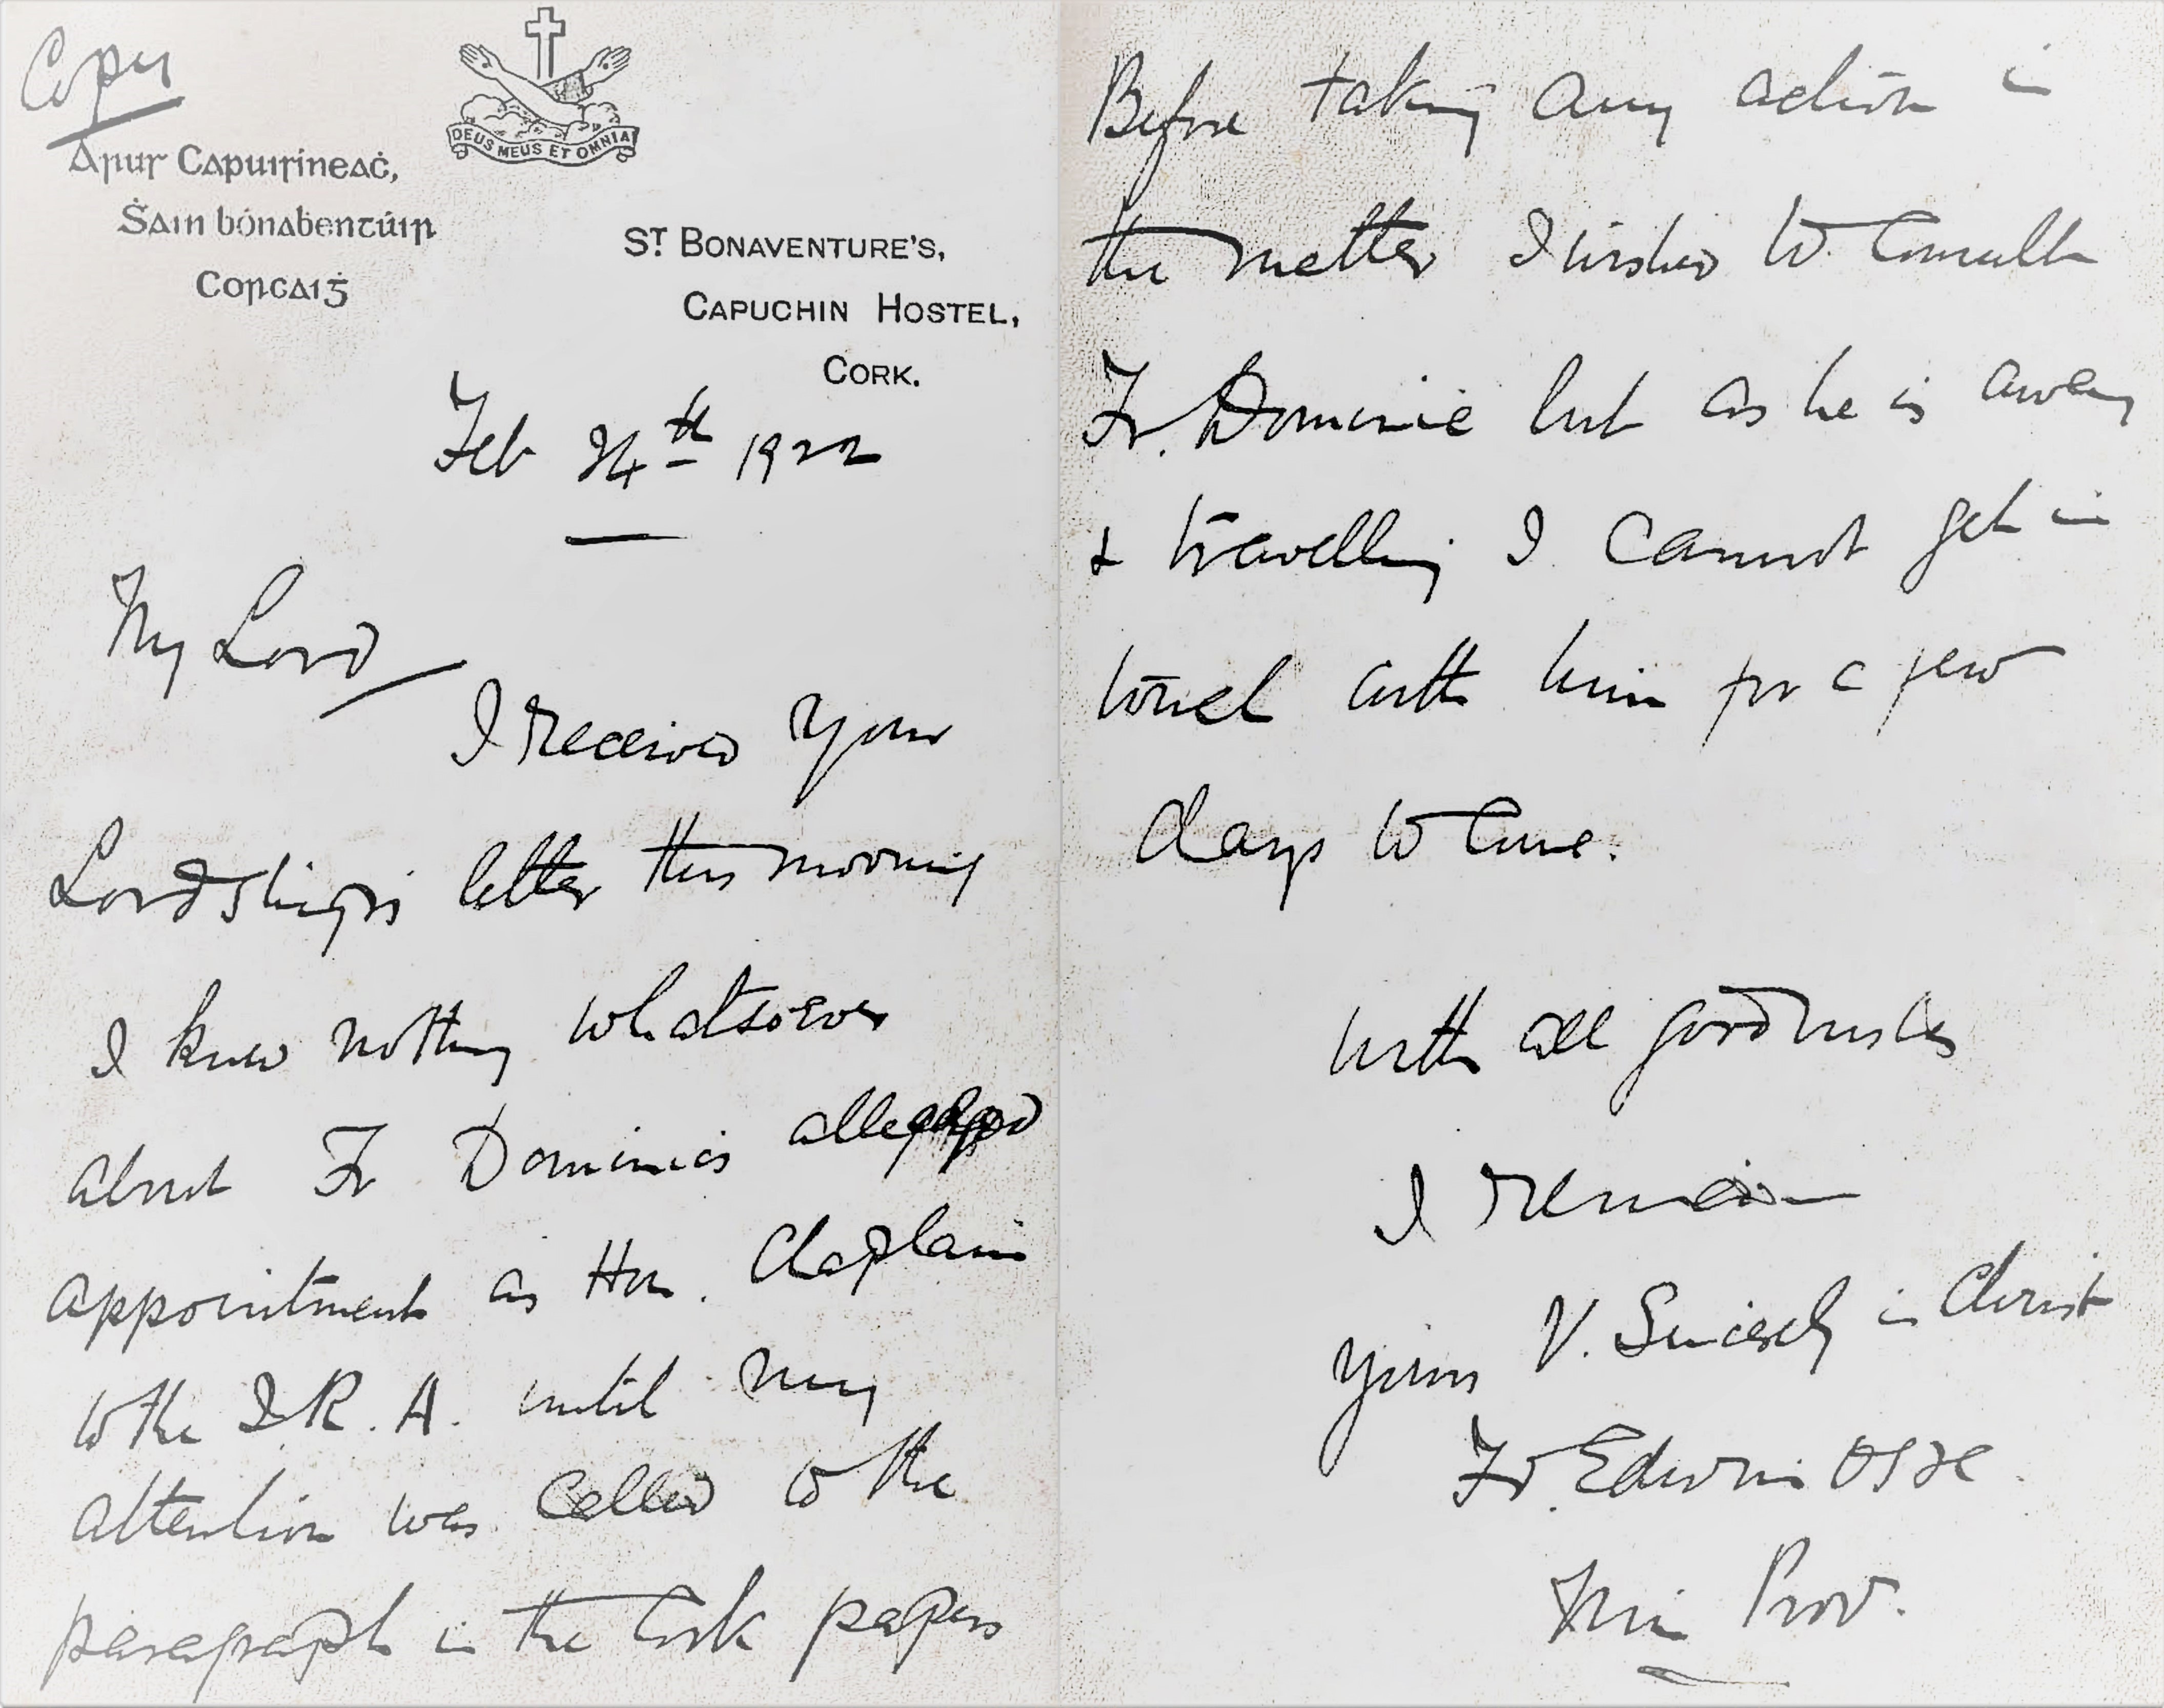 Copy
DEUS MEUS ET OMNIA
Árus Capuisíneaċ,
Ṡain bónaḃentúir
Corcaiġ
ST BONAVENTURE'S,
CAPUCHIN HOSTEL,
CORK.
Feb 24th 1922
My Lord
I received your
Lordship's letter this morning
I knew nothing whatsoever
about Fr Dominic's alleged
appointment as Hon. Chaplain
to the I.R.A. until my
attention was called to the
paragraph in the Cork papers
Before taking any action in
the matter I wished to consult
Fr. Dominic but as he is away
& travelling I cannot get in
touch with him for a few
days to come.
With all good wishes
I remain
Yours V. Sincerely in Christ
Fr. Edwin OSFC.
Min Prov.